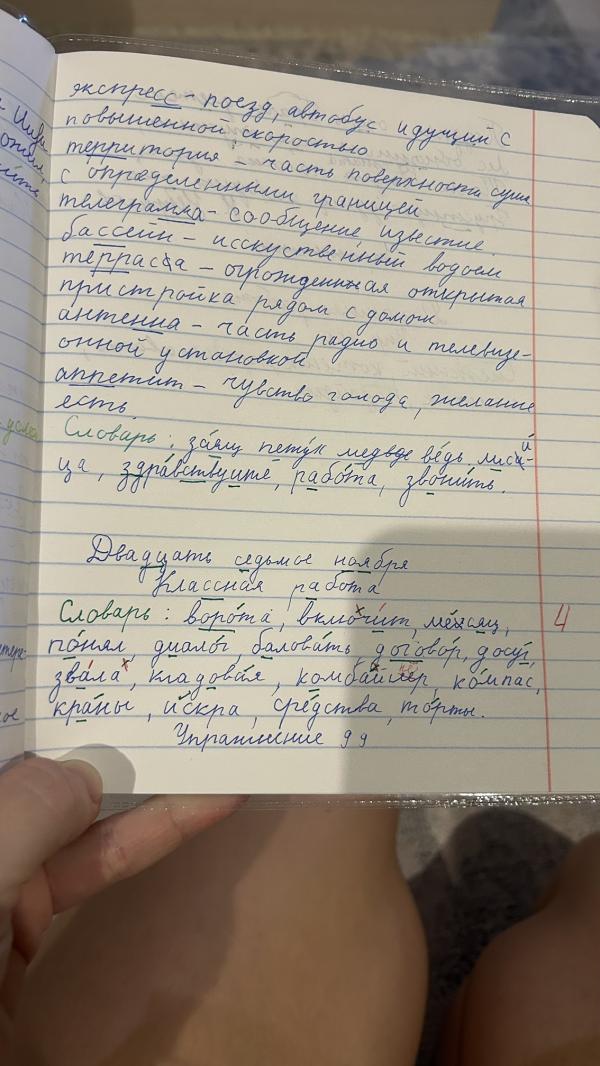 экспресс - поезд, автобус идущий с
повышенной скоростью
территория - часть поверхности суши
с определенными границей
телеграмма - сообщение, известие.
бассейн - исскуственный водоем
терраса - огрожденная открытая
пристройка рядом с домом
антенна - часть радио и телевизе-
онной установкой
аппетит - чувство голода, желание
есть.
Словарь: заяц петух медведь лиси-
ца, здравствуите, работа, звонить.
Двадцать седьмое ноября
Классная работа
Словарь: ворота, включит, месяц,
понял, диалог, баловать договор, досуг,
звала, кладовая, комбайнер, компас,
краны, искра, средства, торты.
4
Упражнение 99